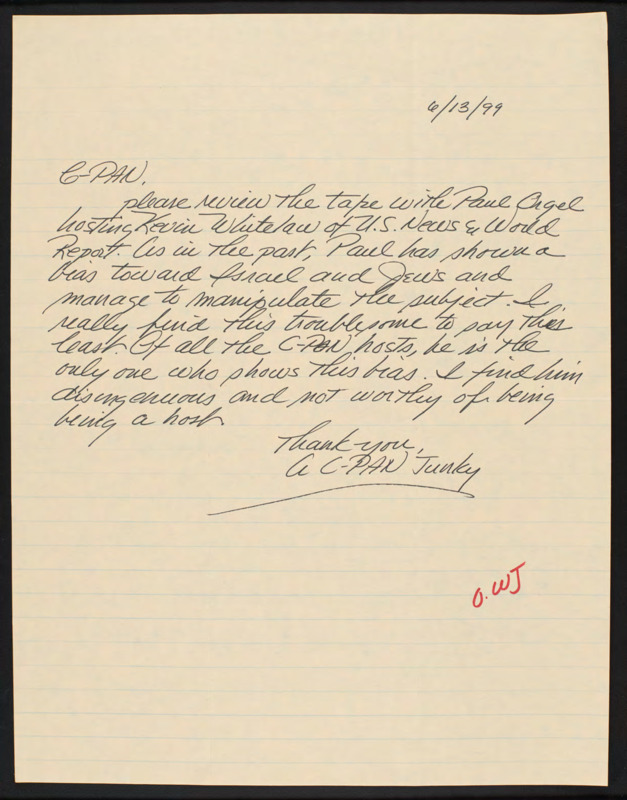 6/13/99
C-PAN,
please review the tape with Paul Orgel
hosting Kevin Whitelaw of U.S. News & World
Report. As in the past, Paul has shown a
bias toward Israel and Jews and
manage to manipulate the subject. I
really find this troublesome to say the
least. Of all the C-PAN hosts, he is the
only one who shows this bias. I find him
disingenuous and not worthy of being
being a host.
Thank you,
A C-PAN Junky
O.WJ